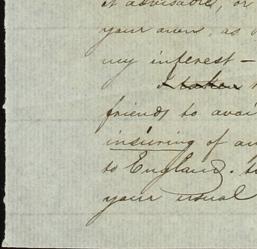 it advisable, or
your own, as
my interest –
I taken
friends to avai
insuring of an
to England. 
your usual